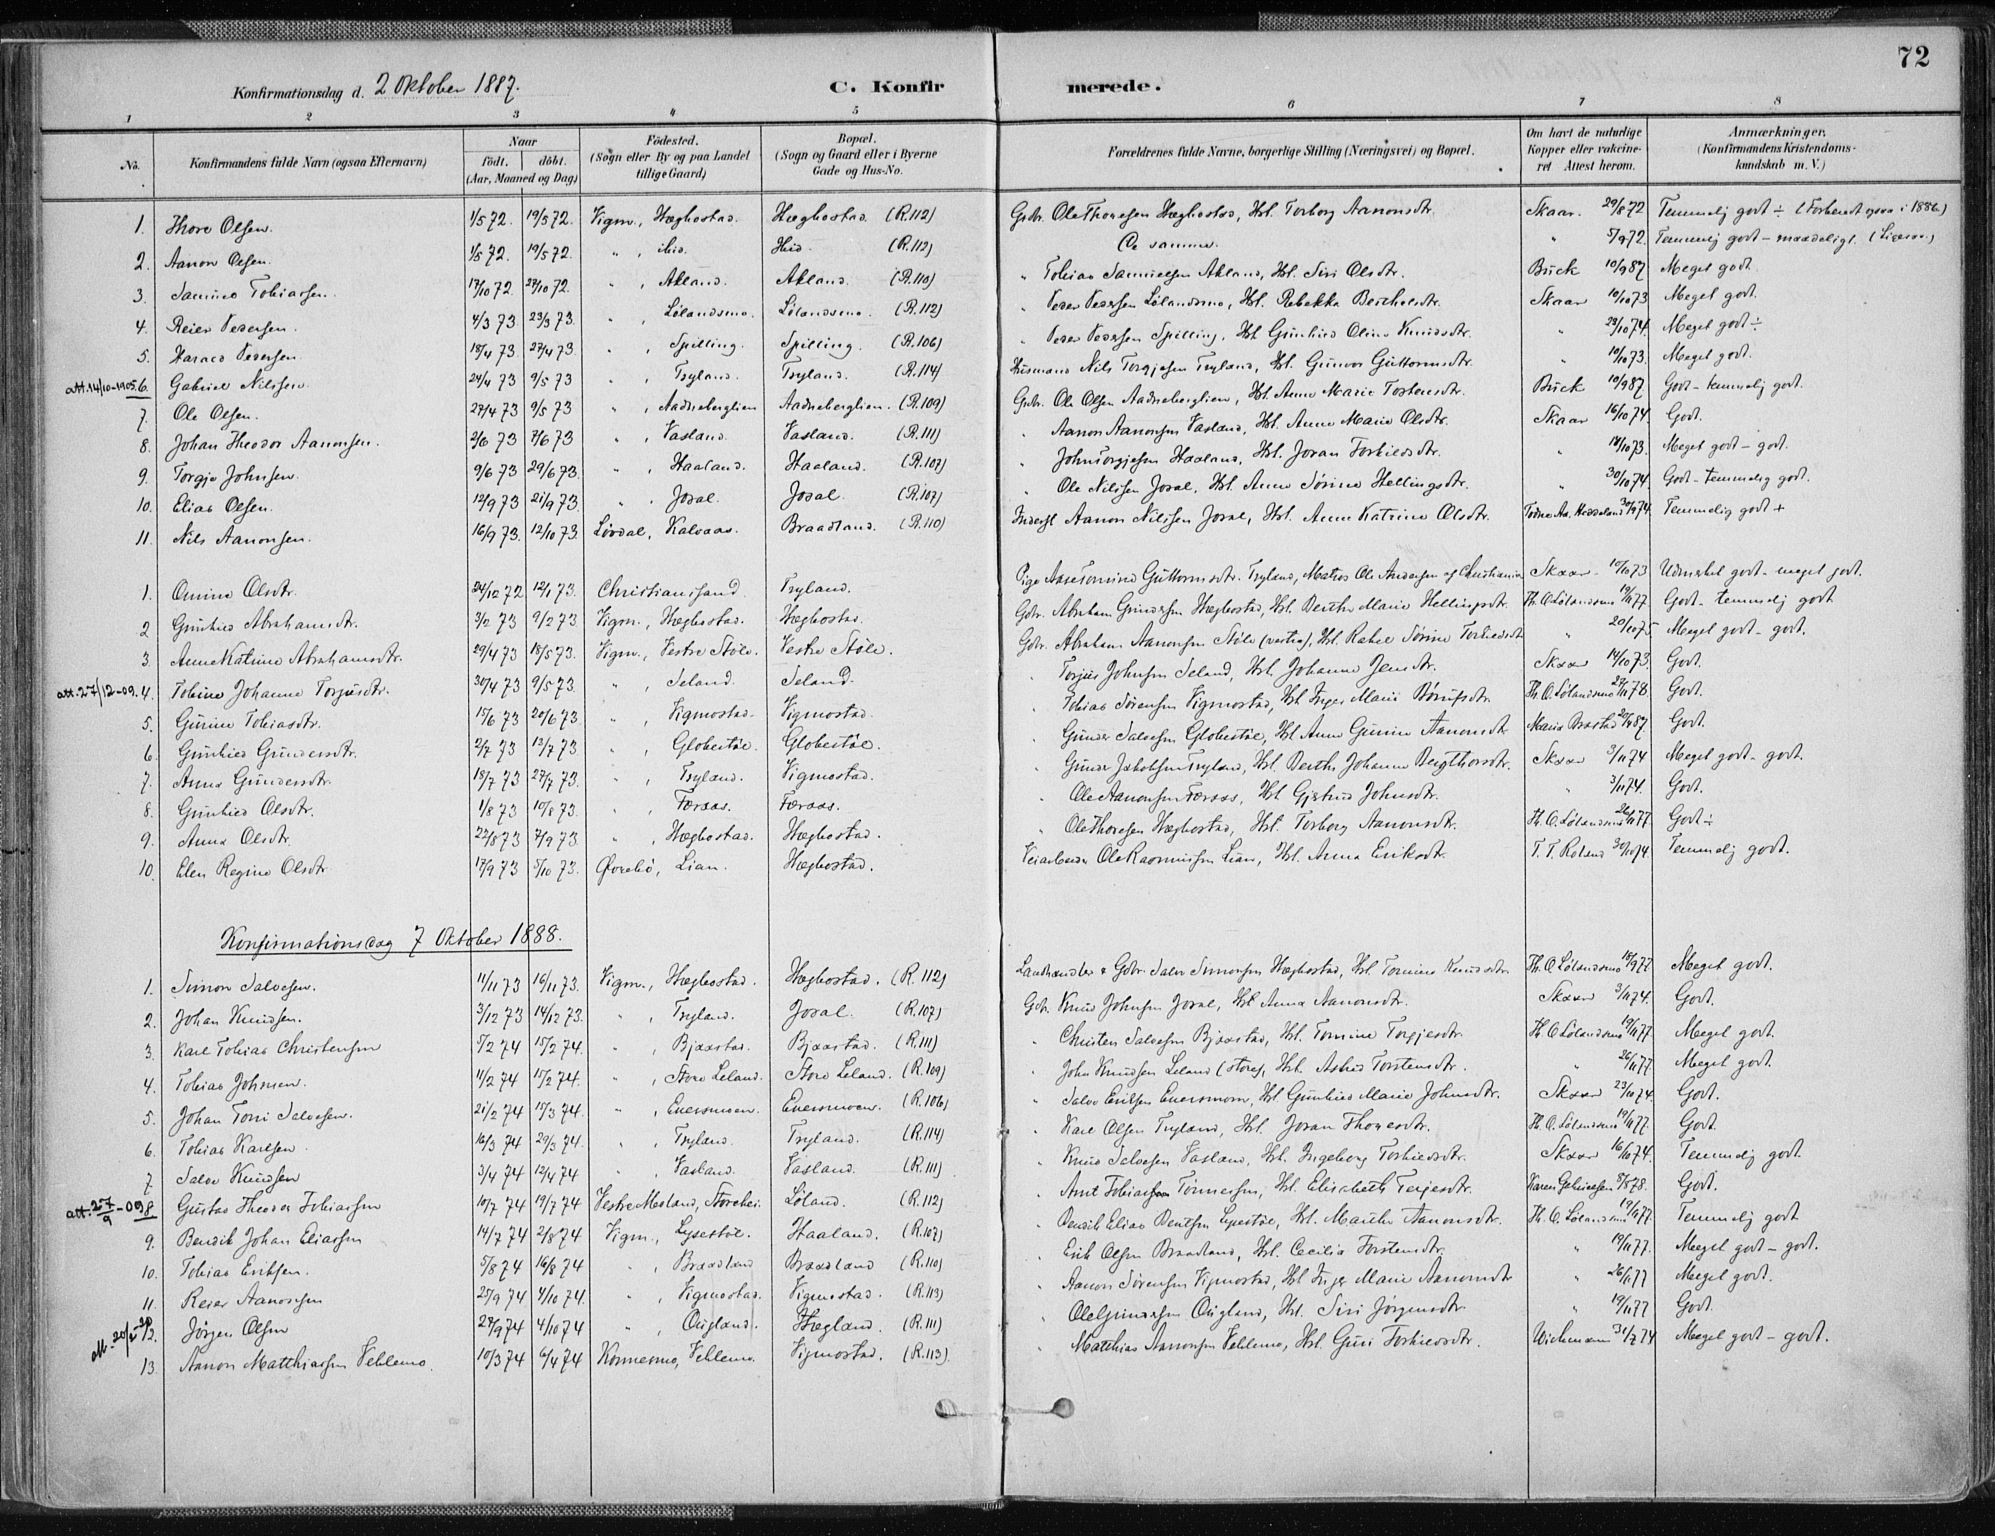 72
Konfirmationsdag d. 2 Oktober 1887. C. Konfirmerede.
1 2 3 4 5 6 7 8
No. Konfirmandens fulde Navn (ogsaa Efternavn) Naar født. døbt. (Aar, Maaned og Dag) Födested. (Sogn eller By og paa Landet tillige Gaard) Bopæl. (Sogn og Gaard eller i Byerne Gade og Hus-No. Forældrenes fulde Navne, borgerlige Stilling (Næringsvei) og Bopæl. Om havt de naturlige Kopper eller vakcineret Attest herom. Anmærkninger. (Konfirmandens Kristendomskundskab m. V.)
1. Thore Olsen. 1/5 72. 19/5 72. Vigm., Hægbostad. Hægbostad (R.112) Gbr. Ole Thoresen Hægbostad, Hst. Torborg Aanonsdtr. Skaar. 29/8 72 Temmelig godt ÷ (Forberedt ogsaa i 1886.)
2. Aanon Olsen. 1/5 72. 19/5 72. " , ibid. Ibid. (R.112) De samme. " 5/9 72. Temmelig godt - maadeligt.
3. Samuel Tobiassen. 17/10 72. 27/10 72. " , Akland. Akland. (R.110) " Tobias Samuelsen Akland, Hst. Siri Olsdtr. Buck 10/9 87 Meget godt.
4. Reier Pedersen. 4/3 73 23/3 73. " , Lølandsmo. Lølandsmo. (R.112) " Peder Pedersen Lølandsmo, Hst. Rebekka Bertelsdtr. Skaar 10/10 73 Meget godt.
5. Harald Pedersen. 18/4 73. 27/4 73. " , Spilling. Spilling. (R.106) " Peder Pedersen Spilling, Hst Gunhild Oline Knudsdtr. " 29/10 74. Meget godt ÷
att. 14/10-1905 6. Gabriel Nilssen. 24/4 73 9/5 73 " , Tryland. Tryland. (R.114) Husmand Nils Torgjesen Tryland, Hst. Gunvor Guttormsdtr. " 10/10 73. Meget godt.
7. Ole Olsen. 27/4 73 9/5 73 " , Aadneberglien Aadneberglien. (R.109) Gbr. Ole Olsen Aadneberglien, Hst. Anne Marie Torkelsdtr. Buck 10/9 87 Godt - temmelig godt.
8. Johan Theodor Aanonsen. 2/6 73 7/6 73 " , Vasland. Vasland. (R.111) " Aanon Aanonsen Vasland, Hst. Anne Marie Olsdtr. Skaar 16/10 74. Godt.
9. Torgje Johnsen. 9/6 73 29/6 73. " , Haaland. Haaland. (R.107) " John Torgjesen Haaland, Hst. Joran Torkildsdtr. " 14/10 73. Meget godt - godt.
10. Elias Olsen. 12/9 73 21/9 73. " , Josal. Josal. (R.107) " Ole Nilssen Josal, Hst. Anne Sørine Hellingsdtr. " 30/10 74. Godt - temmelig godt.
11. Nils Aanonsen. 16/9 73. 12/10 73. Løvdal, Kalvaas. Braadland. (R.110) Inderst Aanon Nilssen Josal, Hst. Anne Katrine Olsdtr. 30/9 74. Temmelig godt +
1. Omine Olsdtr. 24/12 72 12/1 73. Christianssand Tryland. Pige Aase Tomine Guttormsdtr. Tryland, Matros Ole Andersen af Christiania Skaar 10/10 73 Udmærket godt - meget godt.
2 Gunhild Abrahamsdtr. 3/2 73 9/2 73 Vigm., Hægbostad. Hægbostad. Gbr. Abraham Gundersen Hægbostad, Hst. Berthe Marie Hellingsdtr. Th. O. Lølandsmo 19/11 77 Godt - temmelig godt
3. Anne Katrine Abrahamsdtr. 29/4 73 18/5 73. Vigm., Vestre Støle. Vestre Støle. Gbr. Abraham Aanonsen Støle (vestre), Hst. Rakel Sørine Torkildsdtr " 20/10 75 Meget godt - godt.
att. 27/12-09. 4. Tobine Johanne Torjusdtr. 30/4 73 9/5 73. " , Seland. Seland. " Torjus Johnsen Seland, Hst. Johanne Jensdtr. Skaar 14/10 73. Godt.
5. Gurine Tobiasdtr. 15/6 73 20/6 73 " , Vigmostad. Vigmostad. " Tobias Sørensen Vigmostad, Hst Inger Marie Børufsdtr. Th. O. Lølandsmo 27/11 78. Godt.
6. Gunhild Gundersdtr. 2/7 73 12/7 73 " , Globestøl. Globestøl. " Gunder Salvesen Globestøl, Hst Anne Gurine Aanonsdtr. 87 Godt.
7. Anna Gundersdtr. 18/7 73 27/7 73. " , Tryland. Vigmostad. " Gunder Jakobsen Tryland, Hst Berthe Johanne Bergthorsdtr. Skaar 3/11 74 Meget godt - godt.
8. Gunhild Olsdtr. 1/8 73 10/8 73. " , Færaas. Færaas. " Ole Aanonsen Færaas, Hst Gjertrud Johnsdtr. " 3/11 74. Godt.
9. Anna Olsdtr. 22/8 73 7/9 73. " , Hægbostad. Hægbostad. " Ole Thoresen Hægbostad, Hst. Torborg Aanonsdtr. Th. O. Lølandsmo 26/11 77 Godt ÷
10. Elen Regine Olsdtr 17/9 73 5/10 73. Øvrebø, Lian. Hægbostad. Veiarbeider Ole Rasmussen Lian, Hst. Anna Eriksdtr. 30/10 74. Temmelig godt.
Konfirmationsdag 7 Oktober 1888.
1. Simon Salvesen. 11/11 73 16/11 73. Vigm., Hægbostad. Hægbostad. (R.112) Landhandler & Gbr. Salve Simonsen Hægbostad, Hst. Tomine Knudsdtr. Th. O. Lølandsmo 18/9 77. Meget godt.
2. Johan Knudsen. 3/12 73 14/12 73. " , Tryland. Josal. (R.107) Gbr. Knud Johnsen Josal, Hst Anna Aanonsdtr. Skaar 3/11 74. Godt.
3. Karl Tobias Christensen 5/2 74 15/2 74. " , Bjaastad. Bjaastad. (R.111) " Christen Salvesen Bjaastad, Hst. Tomine Torgjesdtr. Th. O. Lølandsmo 19/11 77 Meget godt.
4. Tobias Johnsen. 11/2 74 15/2 74. " , Store Leland. Store Leland. (R.109) " John Knudsen Leland (store), Hst. Astrid Torstensdtr. " 26/11 77 Meget godt.
5. Johan Toni Salvesen. 21/2 74 15/3 74. " , Evensmoen. Evensmoen. (R.106) " Salve Eriksen Evensmoen, Hst Gunhild Marie Johnsdtr. Skaar 23/10 74. Godt.
6. Tobias Karlsen. 16/3 74 29/3 74. " , Tryland. Tryland. (R.114) " Karl Olsen Tryland, Hst. Joran Thoresdtr. Th. O. Lølandsmo 19/11 77. Godt.
7 Salve Knudsen 3/4 74 12/4 74 " , Vasland. Vasland. (R.111) " Knud Salvesen Vasland, Hst. Ingeborg Torkildsdtr. Skaar 16/10 74. Temmelig godt
att. 27/9-09 8. Gustav Theodor Tobiassen 10/7 74 19/7 74 Vestre Moland, Løland. (R.112) " Tønnessen, Hst. Elisabeth Terjesdtr. 8/8 78. Godt.
9. Bendik Johan Eliassen 14/7 74 2/8 74 Vigm., Lysestøl. Haaland. (R.107) " Bendik Elias Bentsen Lysestøl, Hst. Marthe Aanonsdtr. Th. O. Lølandsmo 19/11 77. Temmelig godt
10. Tobias Eriksen. 5/8 74 16/8 74 " , Braadland Braadland (R.110) " Erik Olsen Braadland, Hst. Cecilia Torstensdtr. " 19/11 77. Meget godt - godt.
11. Reier Aanonsen 25/9 74 4/10 74. " , Vigmostad. Vigmostad. (R.113) " Aanon Sørensen Vigmostad, Hst Inger Marie Aanonsdtr " 26/11 77 Meget godt.
att. 20/2-20 12. Jørgen Olsen 27/9 74 4/10 74 " , Øugland. Hægland. (R.111) " Ole Gundersen Øugland, Hst. Siri Jørgensdtr. " 19/11 77 Godt.
13. Aanon Matthiassen Vehlemo. 10/3 74 6/4 74 Konnesmo, Vehlemo. Vigmostad. (R.113) " Matthias Aanonsen Vehlemo, Hst. Guri Torkildsdtr. Wichmann 31/7 74 Meget godt - godt.